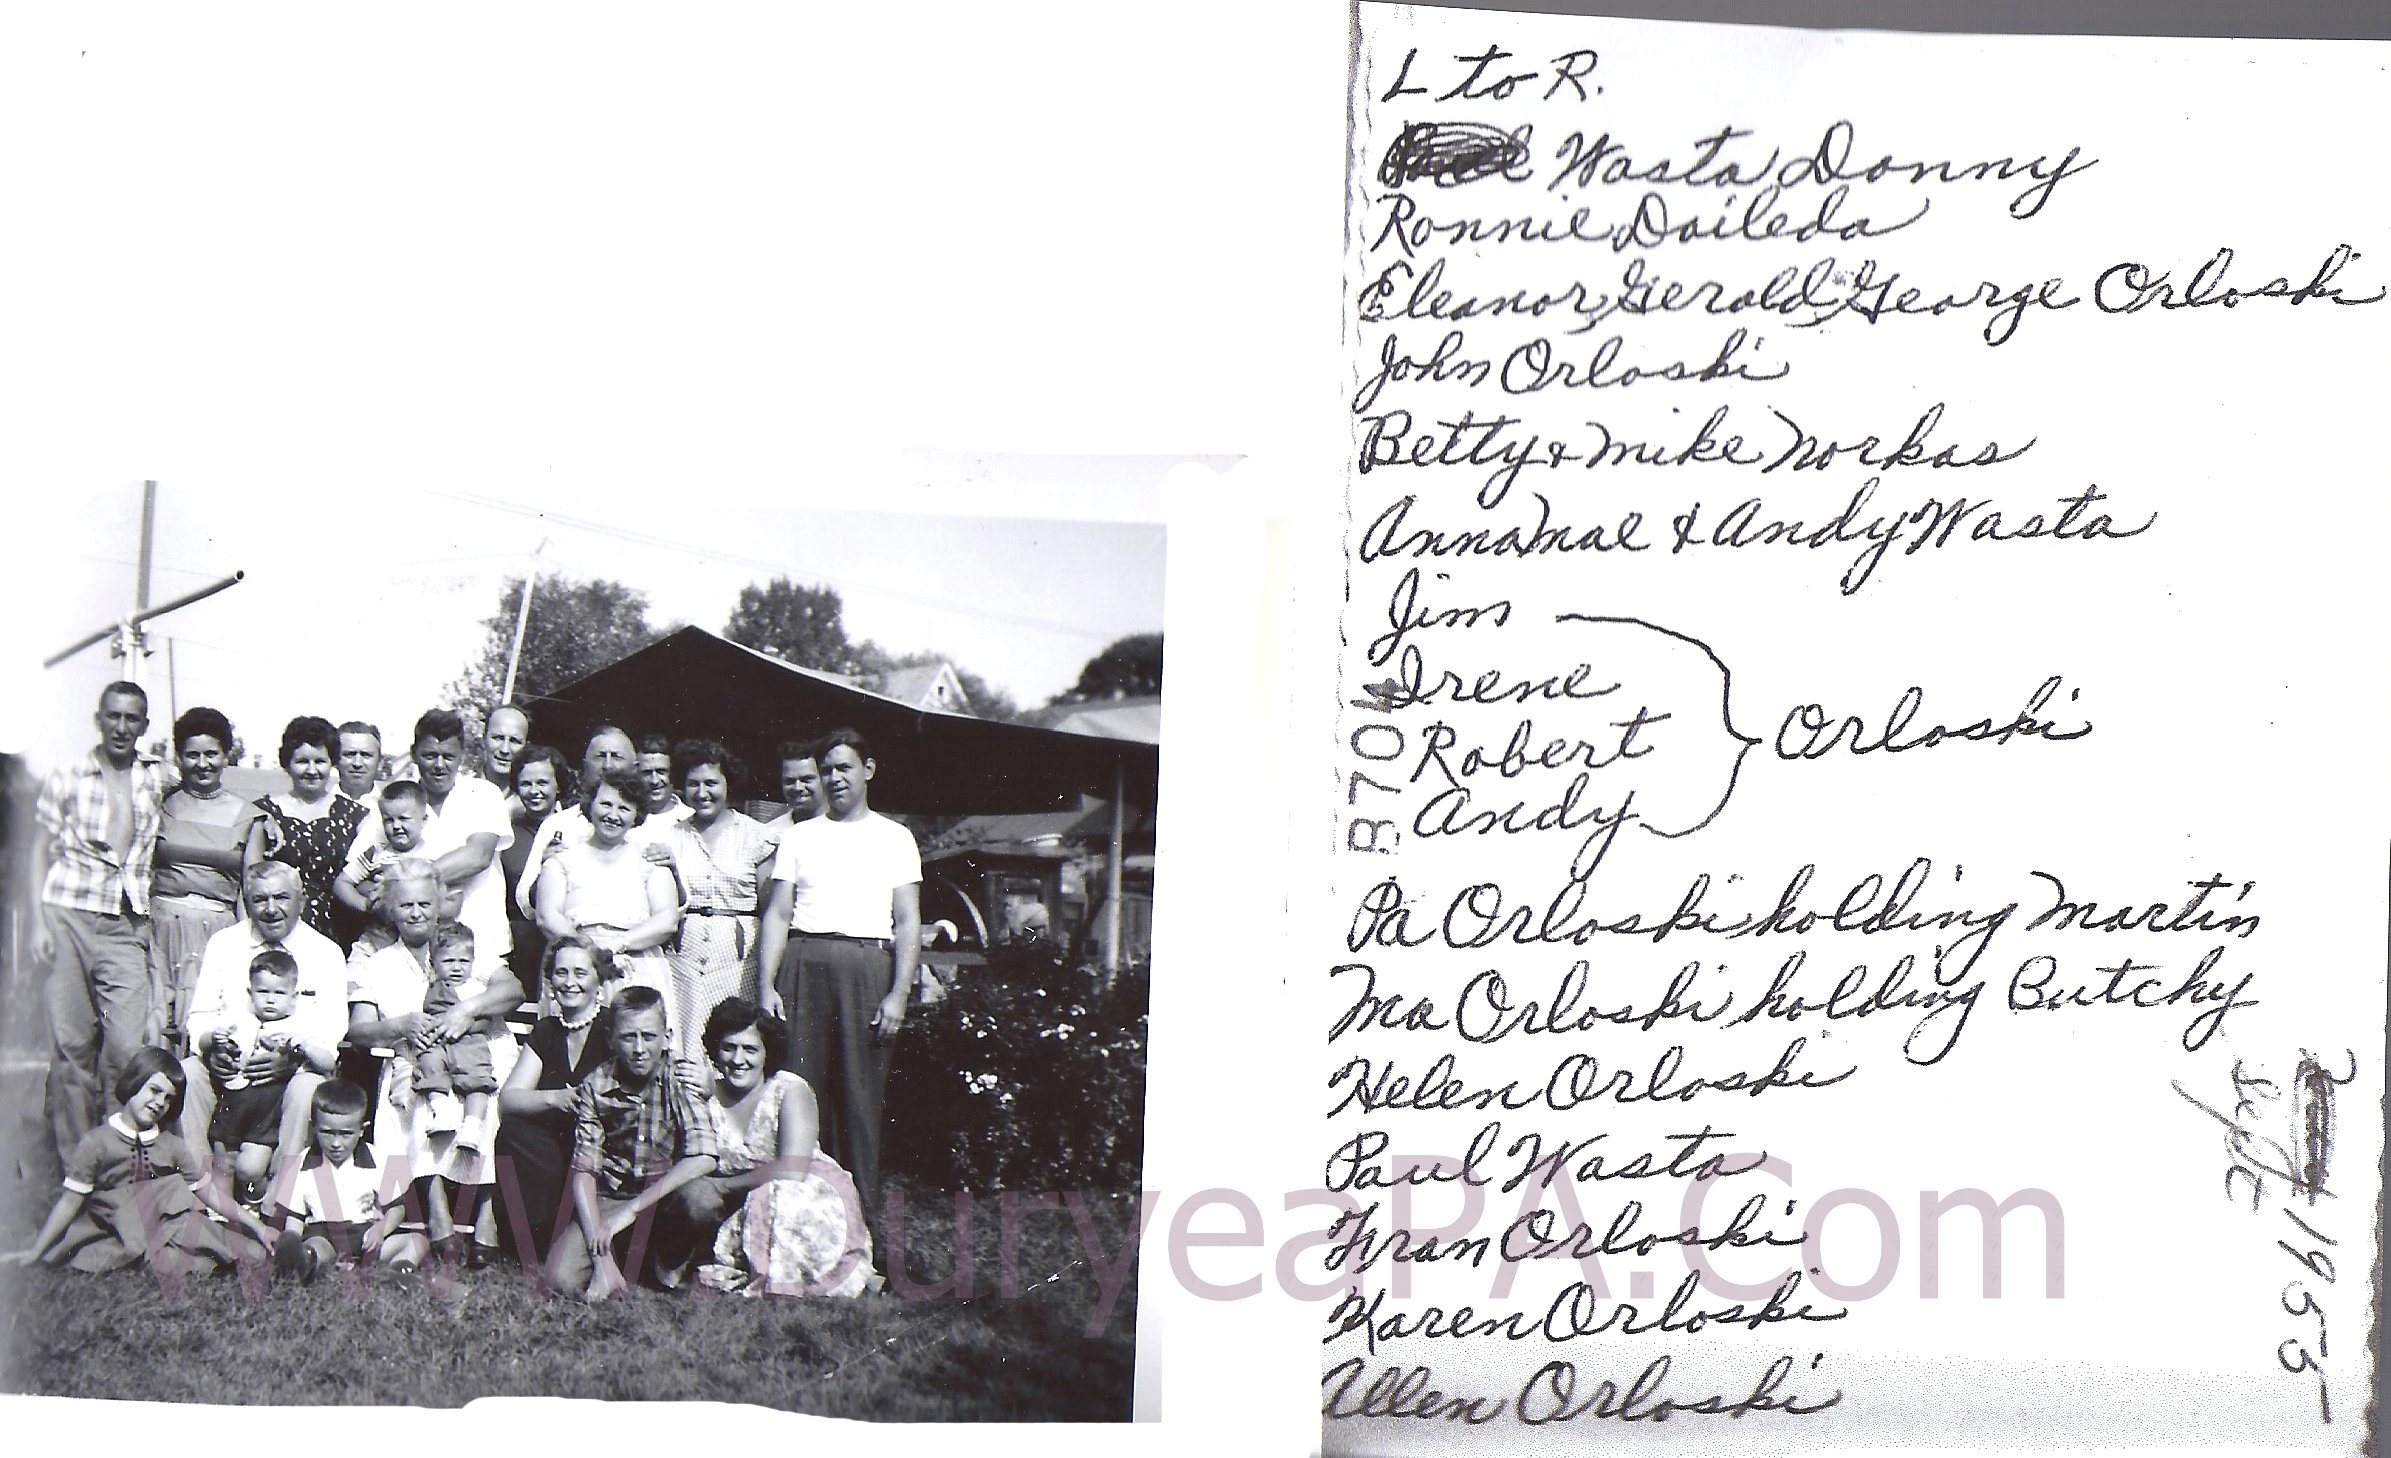 L to R.
Wasta Donny
Ronnie Daileda
Eleanor, Gerald, George Orloski
John Orloski
Betty & Mike Norkas
AnnaMae & Andy Wasta
Jim
Irene
Robert
Andy
Orloski
Pa Orloski holding Martin
Ma Orloski holding Butchy
Helen Orloski
Paul Wasta
Fran Orloski
Karen Orloski
Allen Orloski
Sept
1955
8704
WWW.DuryeaPA.Com